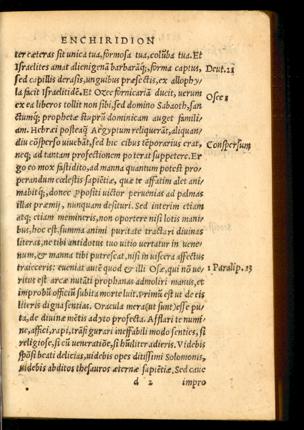 ENCHIRIDION
ter cæteras sit unica tua, formosa tua, colũba tua. Et
Israelites amat alienigenã barbarãq́;, forma captus,
sed capillis derasis, unguibus præsectis, ex allophy-
la facit Israelitidẽ. Et Ozee fornicariã ducit, uerum
ex ea liberos tollit non sibi, sed domino Sabaoth, san
ctumq́; prophetæ stuprũ dominicam auget famili-
am. Hebræi posteaq̃ Aegyptum reliquerãt, aliquan/
diu cõsperso uiuebãt, sed hic cibus tẽporarius erat,
neq; ad tantam profectionem poterat suppetere. Er
go eo mox fastidito, ad manna quantum potest pro/
perandum cœlestis sapiẽtiæ, quæ te affatim alet ani
mabitq́;, donec uictor peruenias ad palmas
illas præmij, nunquam desituri. Sed interim etiam
atq; etiam memineris, non oportere nisi lotis mani-
bus, hoc est, summa animi puritate tractari diuinas
literas, ne tibi antidotus tuo uitio uertatur in uene-
num, & manna tibi putrescat, nisi in uiscera affectus
traieceris: eueniat autẽ quod & illi Osæ, qui nõ ue/
ritus est arcæ nutãti prophanas admoliri manus, et
improbũ officiũ subita morte luit. primũ est ut de ijs
literis digna sentias. Oracula mera (ut sunt) esse pu-
ta, de diuinæ mẽtis adyto profecta. Afflari te numi-
ne, affici, rapi, trãsfigurari ineffabili modo senties, si
religiose, si cũ ueneratiõe, si hũiliter adieris. Videbis
spõsi beati delicias, uidebis opes ditissimi Solomonis,
uidebis abditos thesauros æternæ sapiẽtiæ. Sed caue
d 2 impro
Deut. 21
Osee 1
Conspersum
1 Paralip. 13